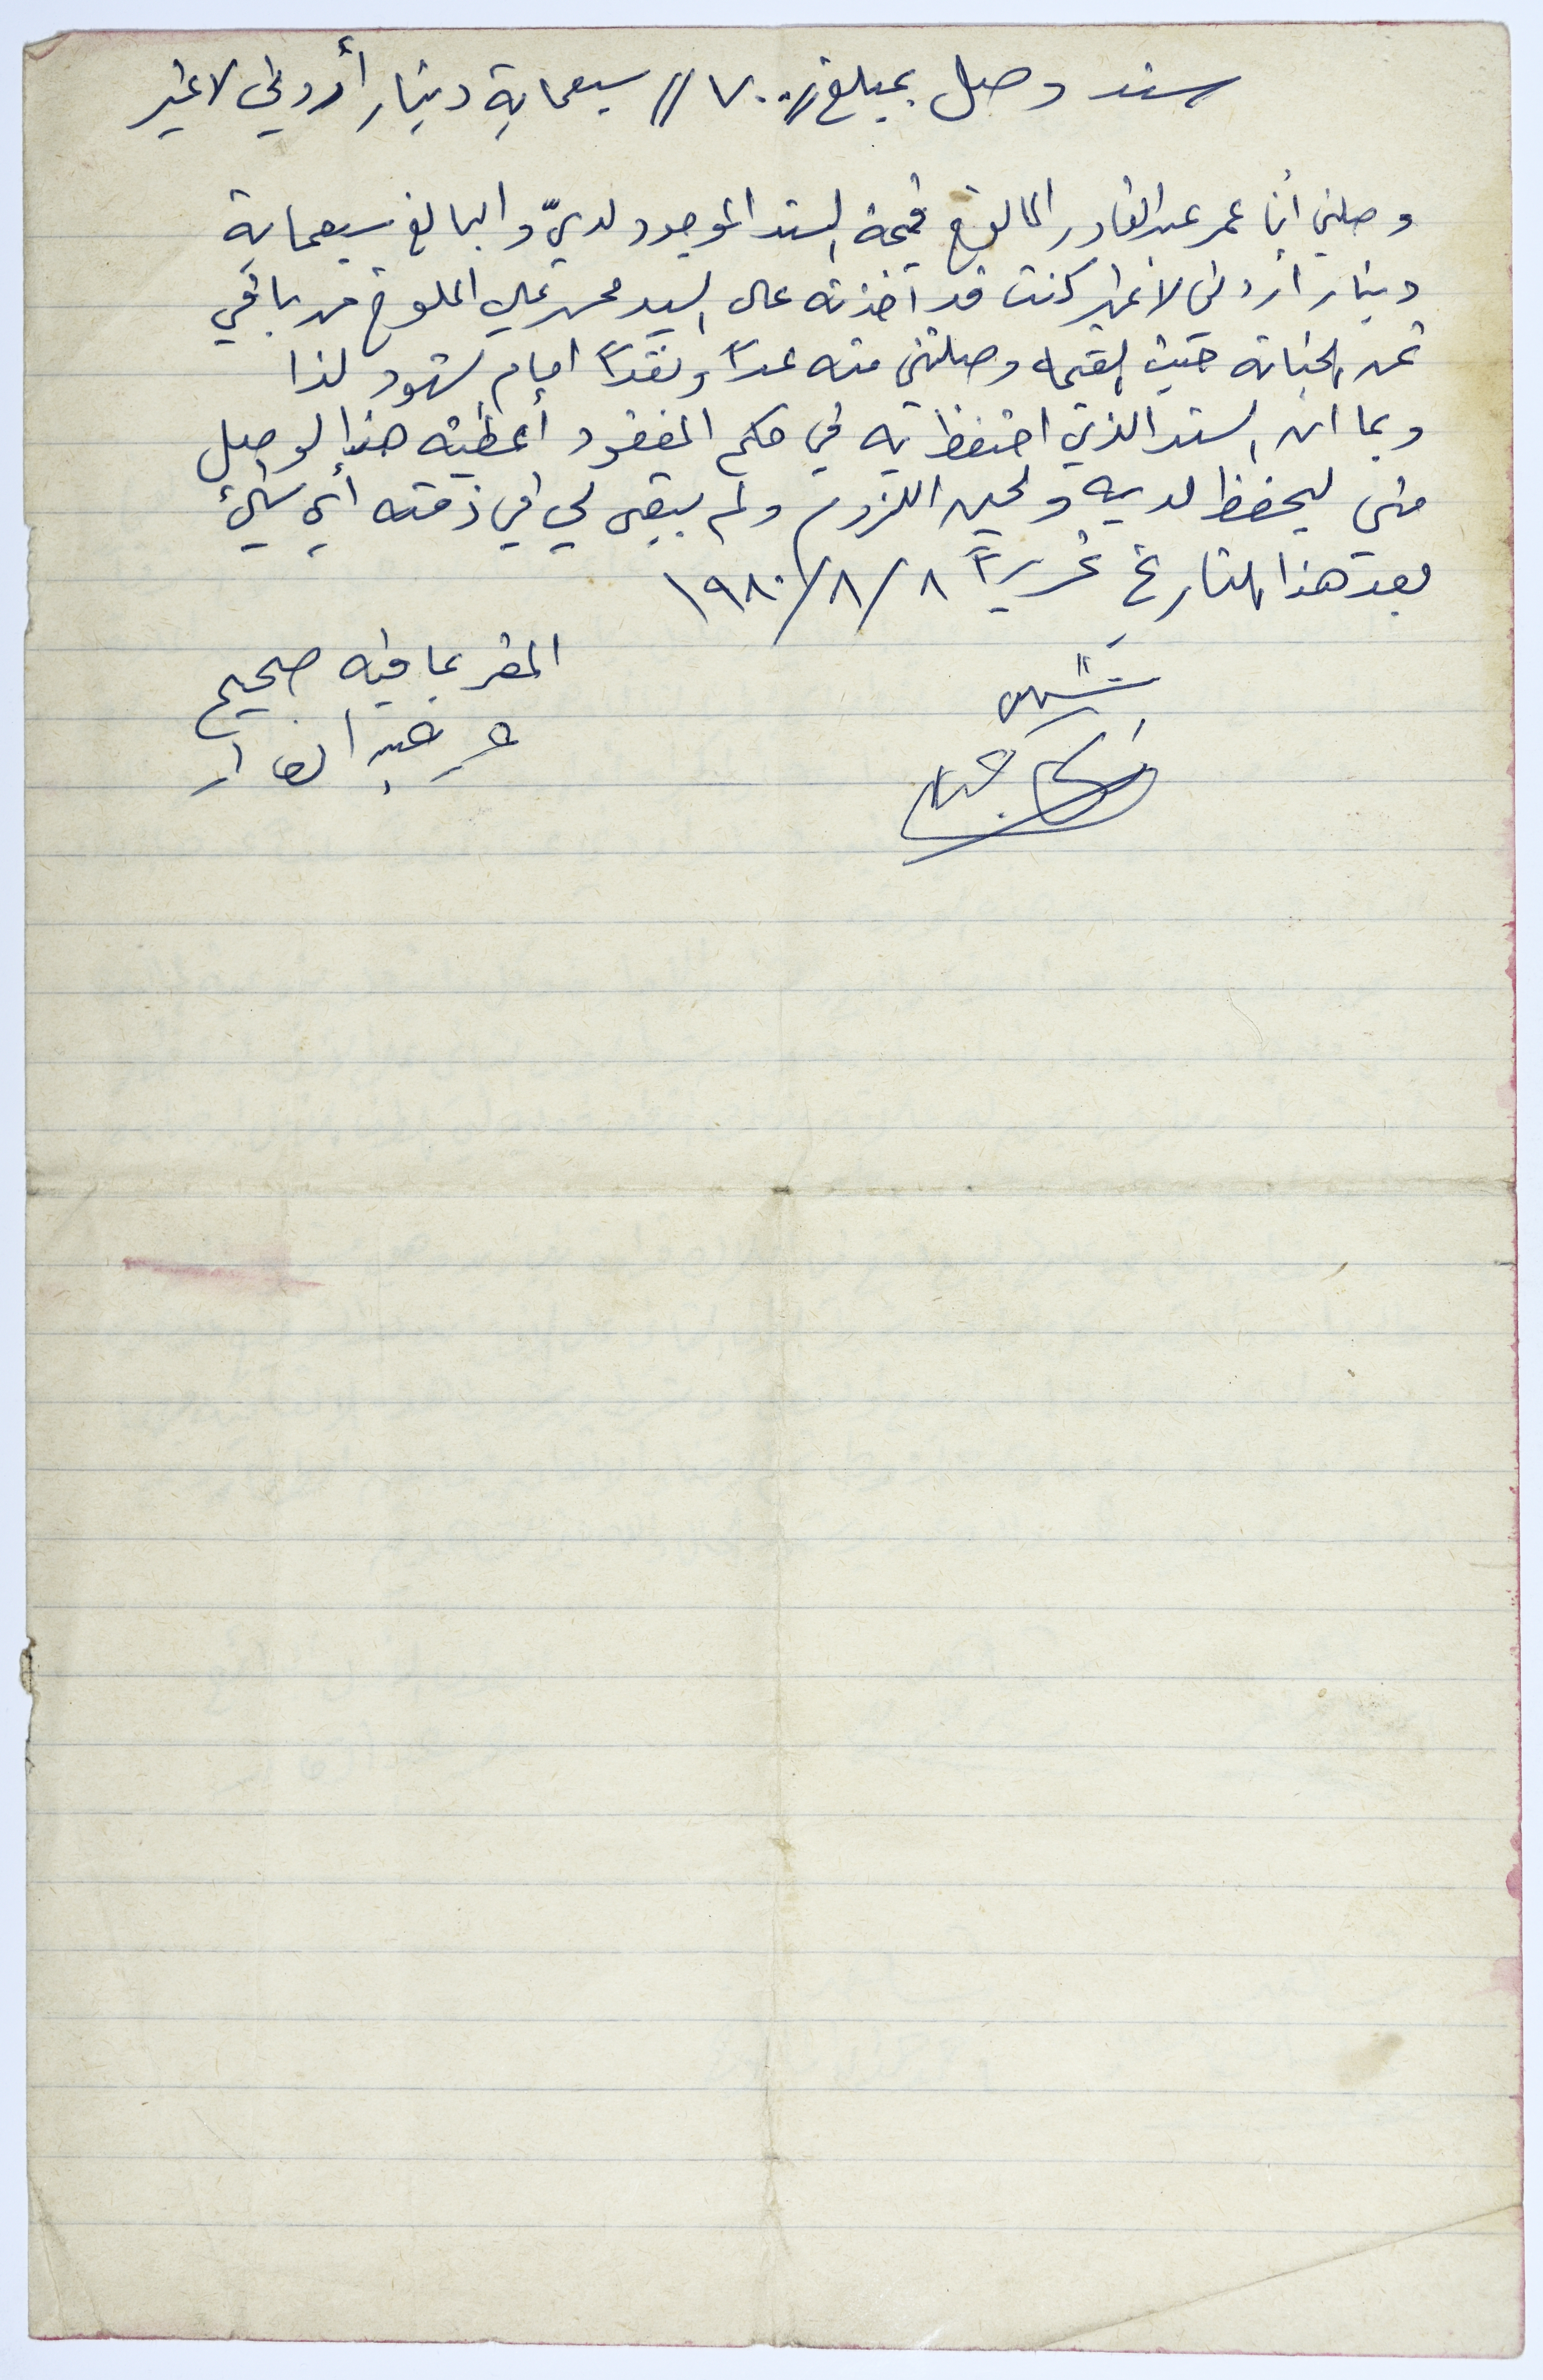 سند وصل بمبلغ // ٧٠٠ // سبعماية دينار أردني لاغير
وصلني أنا عمر عبد القادر المالوخ قيمة السند الموجود لديّ والبالغ سبعماية
دينار اردني لاغير كنت قد أخذته على السيد محمد علي الملوخ من باقي
ثمن حيث القيمه وصلتني منه عداً ونقداً امام شهود لذا
وبما ان السند الذي احتفظ به في حكم المفقود أعطيته هذا الوصل
مني ليحفظ لديه ولحين اللزوم ولم يبقى لي في ذمته أي شيء
بعد هذا التاريخ تحريراً ٨/٨/١٩٨٠
المقر بما فيه صحيح
شهود
عمر عبد القادر